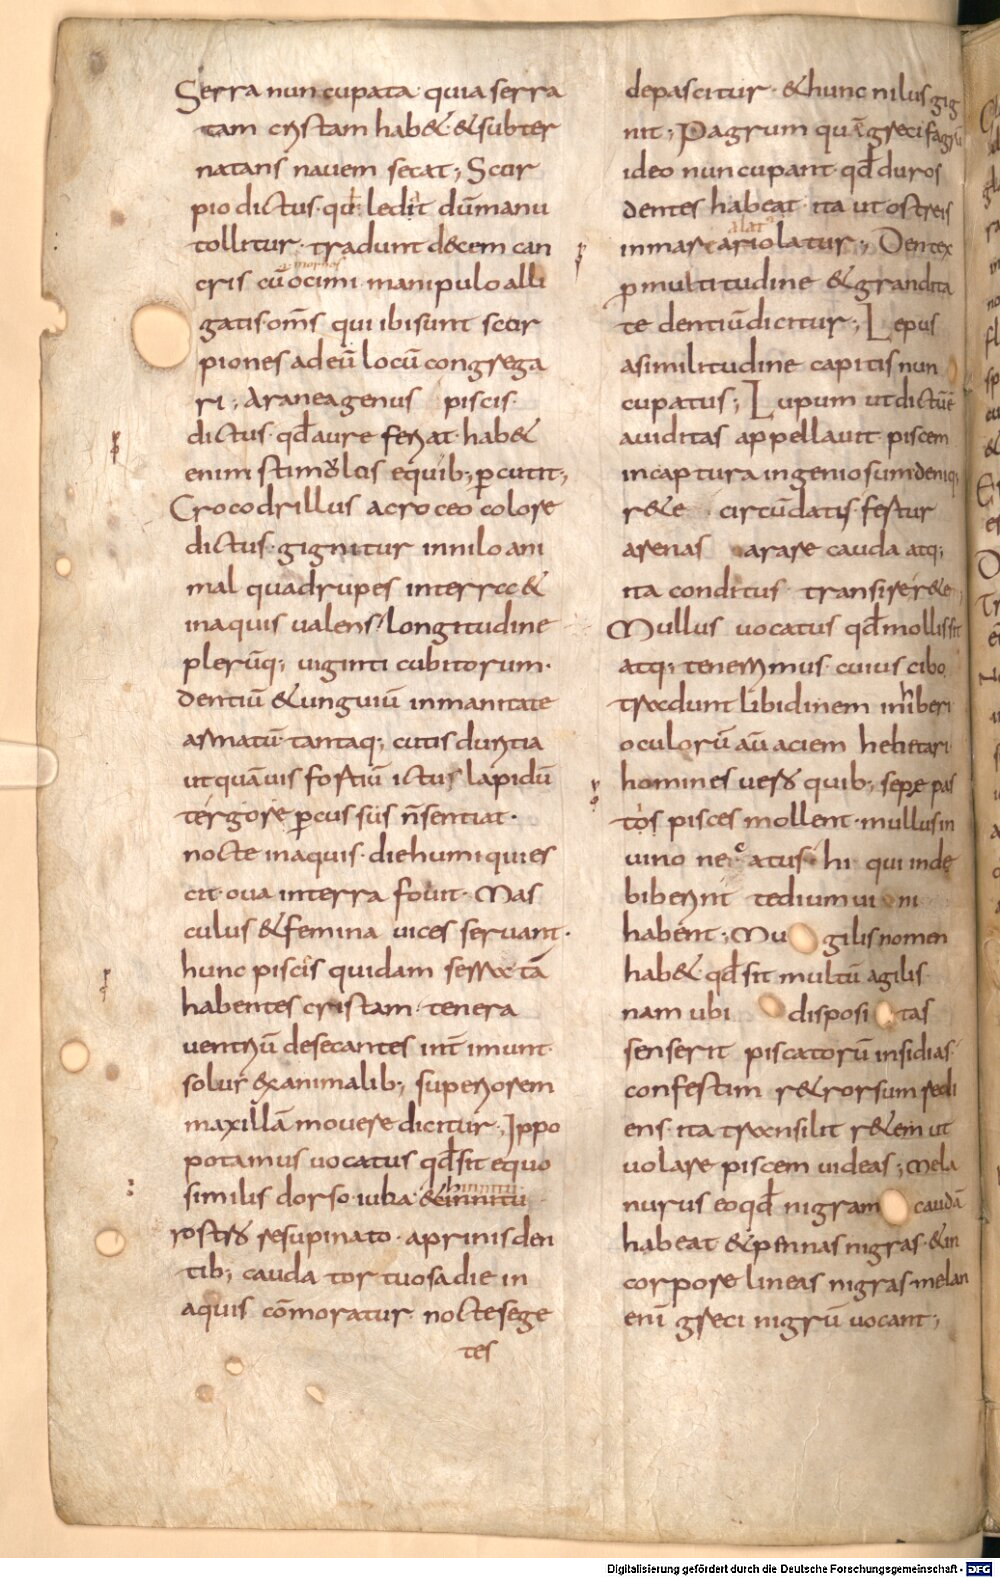 Serra nuncupata quia serra
tam cristam hab& & subter
natans nauem secat; Scor
pio dictus· qd ledit dū manu
tollitur· tradunt decem can
cris cū ocimi manipulo alli
gatis· om̄s qui ibi sunt scor
piones ad eū locū congrega
ri; Aranea genus piscis·
dictus· qđ aure feriat· hab&
enim stimulos equib; ꝑcutit;
Crocodrillus a croceo colore
dictus· gignitur in nilo ani
mal quadrupes in terra &
in aquis ualens· longitudine
plerūq; uiginti cubitorum·
dentiū & unguiū inmanitate
armatū· tantaq; cutis duritia
ut quāuis fortiū ictus lapidū
tergore ꝑcussus n̄ sentiat·
nocte in aquis· die humi quies
cit· oua in terra fouit· Mas
culus & femina uices seruant·
hunc piscis quidam serratā
habentes cristam· tenera
uentriū desecantes int̄imunt·
solus ex animalib; superiorem
maxillā mouere dicitur; Ippo
potamus uocatus qđ sit equo
similis dorso· iuba & innitu
hinnitu
rostro resupinato· aprinis den
tib; cauda tortuosa die in
aquis cōmoratur· nocte sege
tes
depascitur· & hunc nilus gig
nit; Pagrum quē greci fagrū
ideo nuncupant· qđ duros
dentes habeat· ita ut ostreis
in mare ariolatur; Dentex
alat
ꝑ multitudine & grandita
te dentiū dicitur; Lepus
a similitudine capitis nun
cupatus; Lupum ut dictū ē
auiditas appellauit· piscem
in captura ingeniosum· deniq;
r&e circūdatus fertur
arenas arare cauda atq;
ita conditus transire r&e;
Mullus uocatus qđ mollis sit
atq; tenerrimus· cuius cibo
tradunt libidinem inhiberi
oculorū aū aciem hebetari
homines uero quib; sepe pas
tos pisces mollent· mullus in
uino necatus· hi qui inde
biberint tedium ui ni
habent; Mu gilis nomen
hab& qđ sit multū agilis·
nam ubi disposi tas
senserit piscatorū insidias·
confestim r&rorsum redi
ens· ita transilit r&em ut
uolare piscem uideas; Mela
nurus eo qđ nigram caudā
habeat & pennas nigras· & in
corpore lineas nigras· melan
enī greci nigrū uocant;
Digitalisierung gefördert durch die Deutsche Forschungsgemeinschaft - DFG